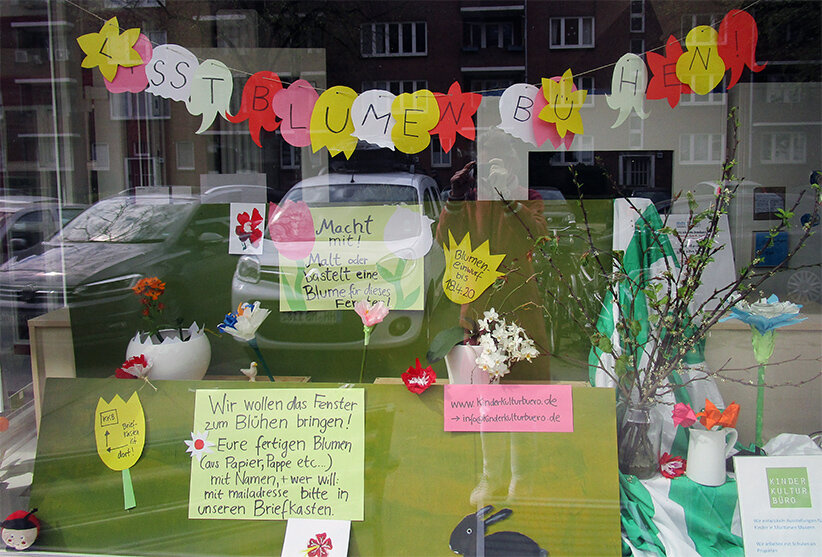 LASST BLUMEN BLÜHEN!
Macht
mit!
Malt oder
bastelt eine
Blume für dieses
Fenster!
Blumen-
einwurf
bis
18.4.20
www.kinderkulturbuero.de
→ info@kinderkulturbuero.de
KKB
Brief-
kasten
ist
dort!
Wir wollen das Fenster
zum Blühen bringen!
Eure fertigen Blumen
(aus Papier, Pappe etc...)
mit Namen, + wer will:
mit mailadresse bitte in
unseren Briefkasten.
KINDER
KULTUR
BÜRO
Wir entwickeln Ausstellungen
Kinder in Museen
Wir arbeiten an Schulen
Projekten